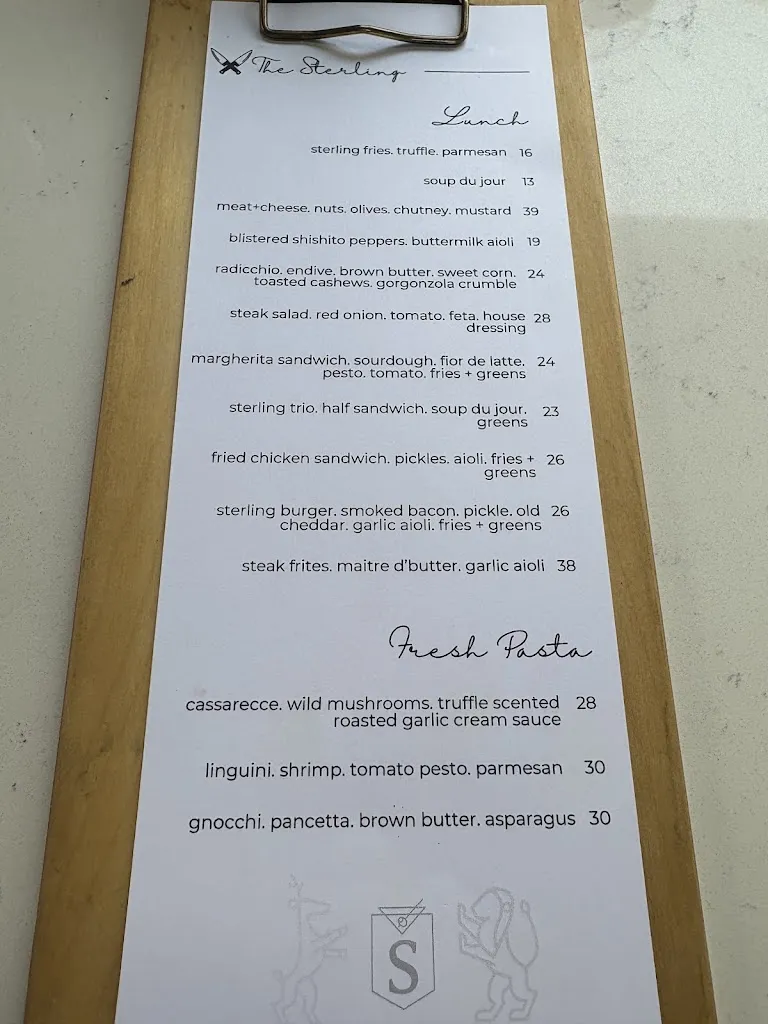 The Sterling
Lunch
sterling fries. truffle. parmesan 16
soup du jour 13
meat+cheese. nuts. olives. chutney. mustard 39
blistered shishito peppers. buttermilk aioli 19
radicchio. endive. brown butter. sweet corn. 24
toasted cashews. gorgonzola crumble
steak salad. red onion. tomato. feta. house 28
dressing
margherita sandwich. sourdough. fior de latte. 24
pesto. tomato. fries + greens
sterling trio. half sandwich. soup du jour. 23
greens
fried chicken sandwich. pickles. aioli. fries + 26
greens
sterling burger. smoked bacon. pickle. old 26
cheddar. garlic aioli. fries + greens
steak frites. maitre d'butter. garlic aioli 38
Fresh Pasta
cassarecce. wild mushrooms. truffle scented 28
roasted garlic cream sauce
linguini. shrimp. tomato pesto. parmesan 30
gnocchi. pancetta. brown butter. asparagus 30
S